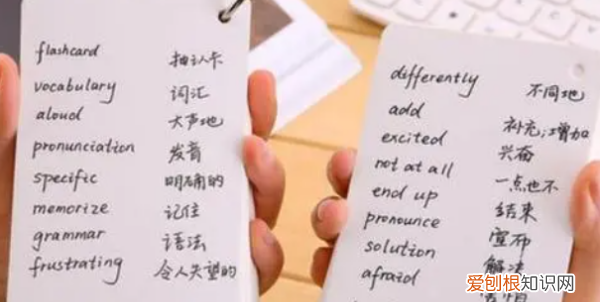 flashcard 抽认卡
vocabulary 词汇
aloud 大声地
pronunciation 发音
specific 明确的
memorize 记住
grammar 语法
frustrating 令人失望的
differently 不同地
add 补充;增加
excited 兴奋
not at all 一点也不
end up 结束
pronounce 宣布
solution 解决
afraid
爱刨根知识网